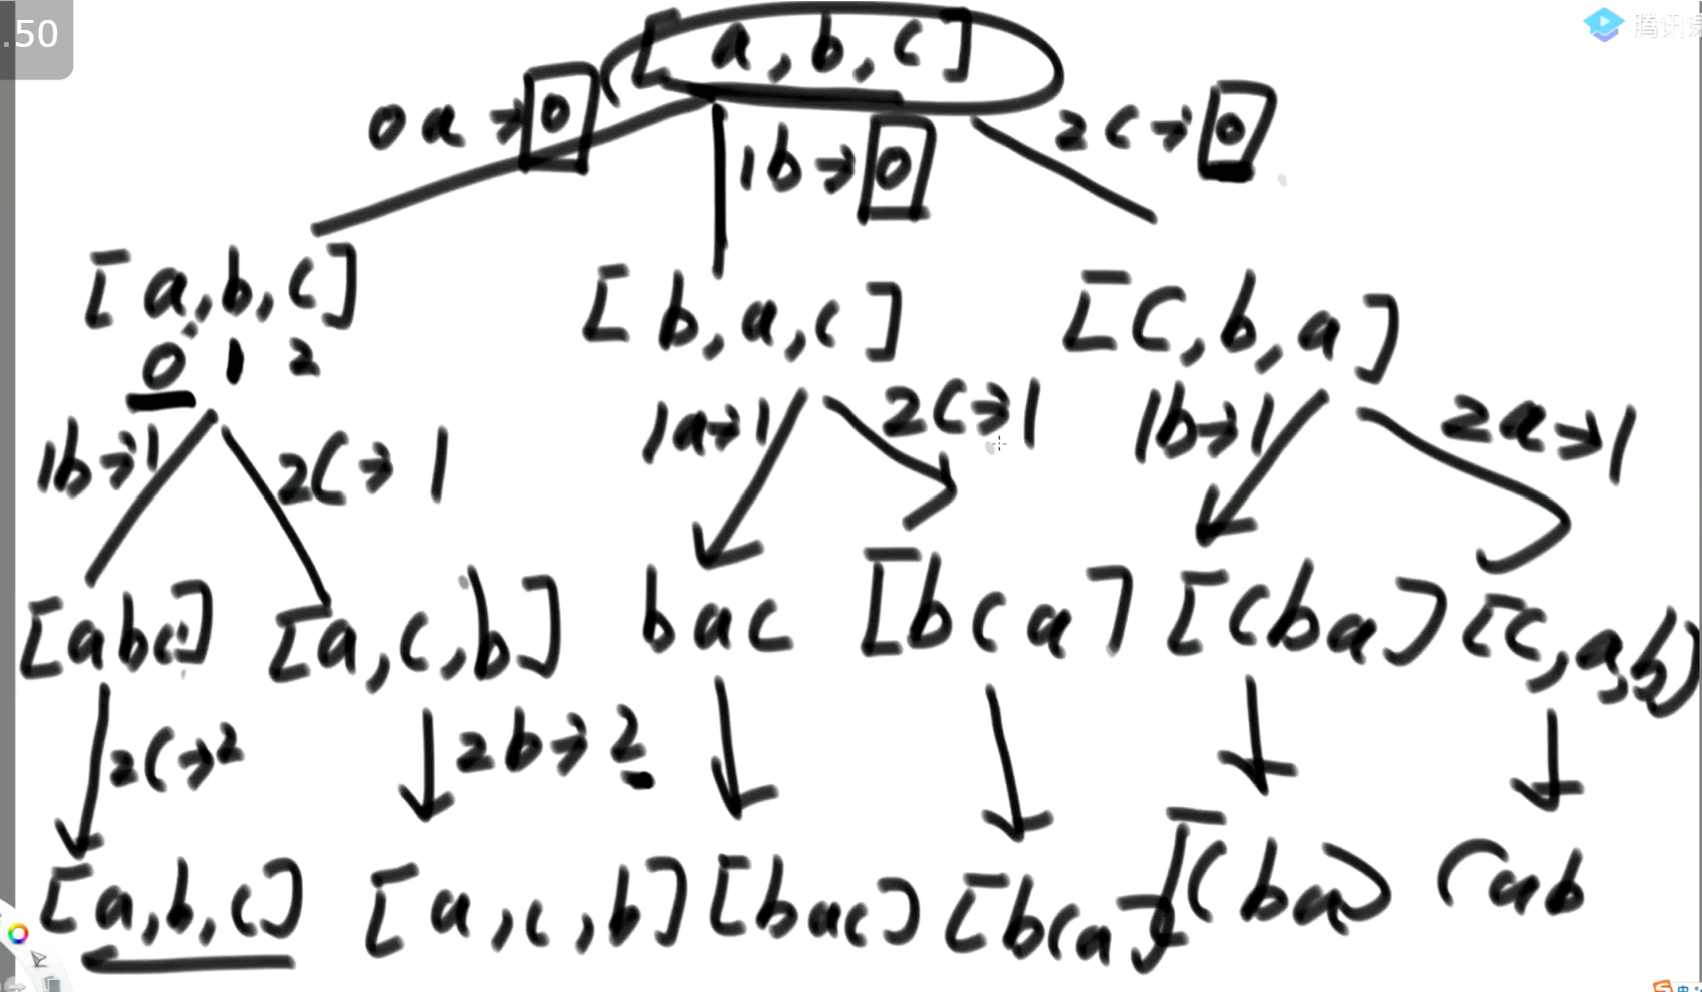 .50
腾讯课
[a,b,c]
0a→0
1b→0
2c→0
[a,b,c]
[b,a,c]
[c,b,a]
0 1 2
1b→1
2c→1
1a→1
2c→1
1b→1
2a→1
[abc]
[a,c,b]
bac
[bca]
[cba]
[c,a,b]
2c→2
2b→2
[a,b,c]
[a,c,b]
[bac]
[bca]
[cba]
cab
中